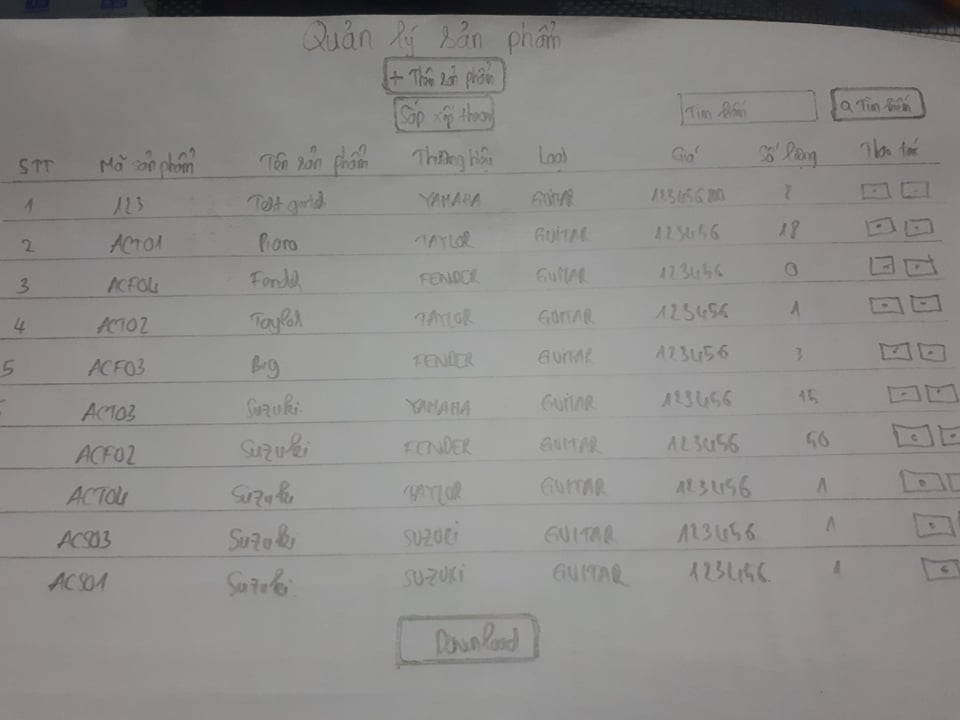 Quản lý sản phẩm
+ Thêm sản phẩm
Sắp xếp theo
Tìm kiếm Q Tìm kiếm
STT Mã sản phẩm Tên sản phẩm Thương hiệu Loại Giá Số lượng Thao tác
1 123 Test YAMAHA GUITAR
2 ACT01 Piano TAYLOR GUITAR 123456 18
3 ACF04 GUITAR 123456 0 FENDER
4 ACT02 Taylor TAYLOR GUITAR 123456 1
5 ACF03 Big FENDER GUITAR 123456 3
ACT03 Suzuki YAMAHA GUITAR 123456 15
ACF02 Suzuki FENDER GUITAR 123456 56
ACT04 Suzuki TAYLOR GUITAR 123456 1
ACS03 Suzuki SUZUKI GUITAR 123456 1
ACS01 Suzuki SUZUKI GUITAR 123456 1
Download